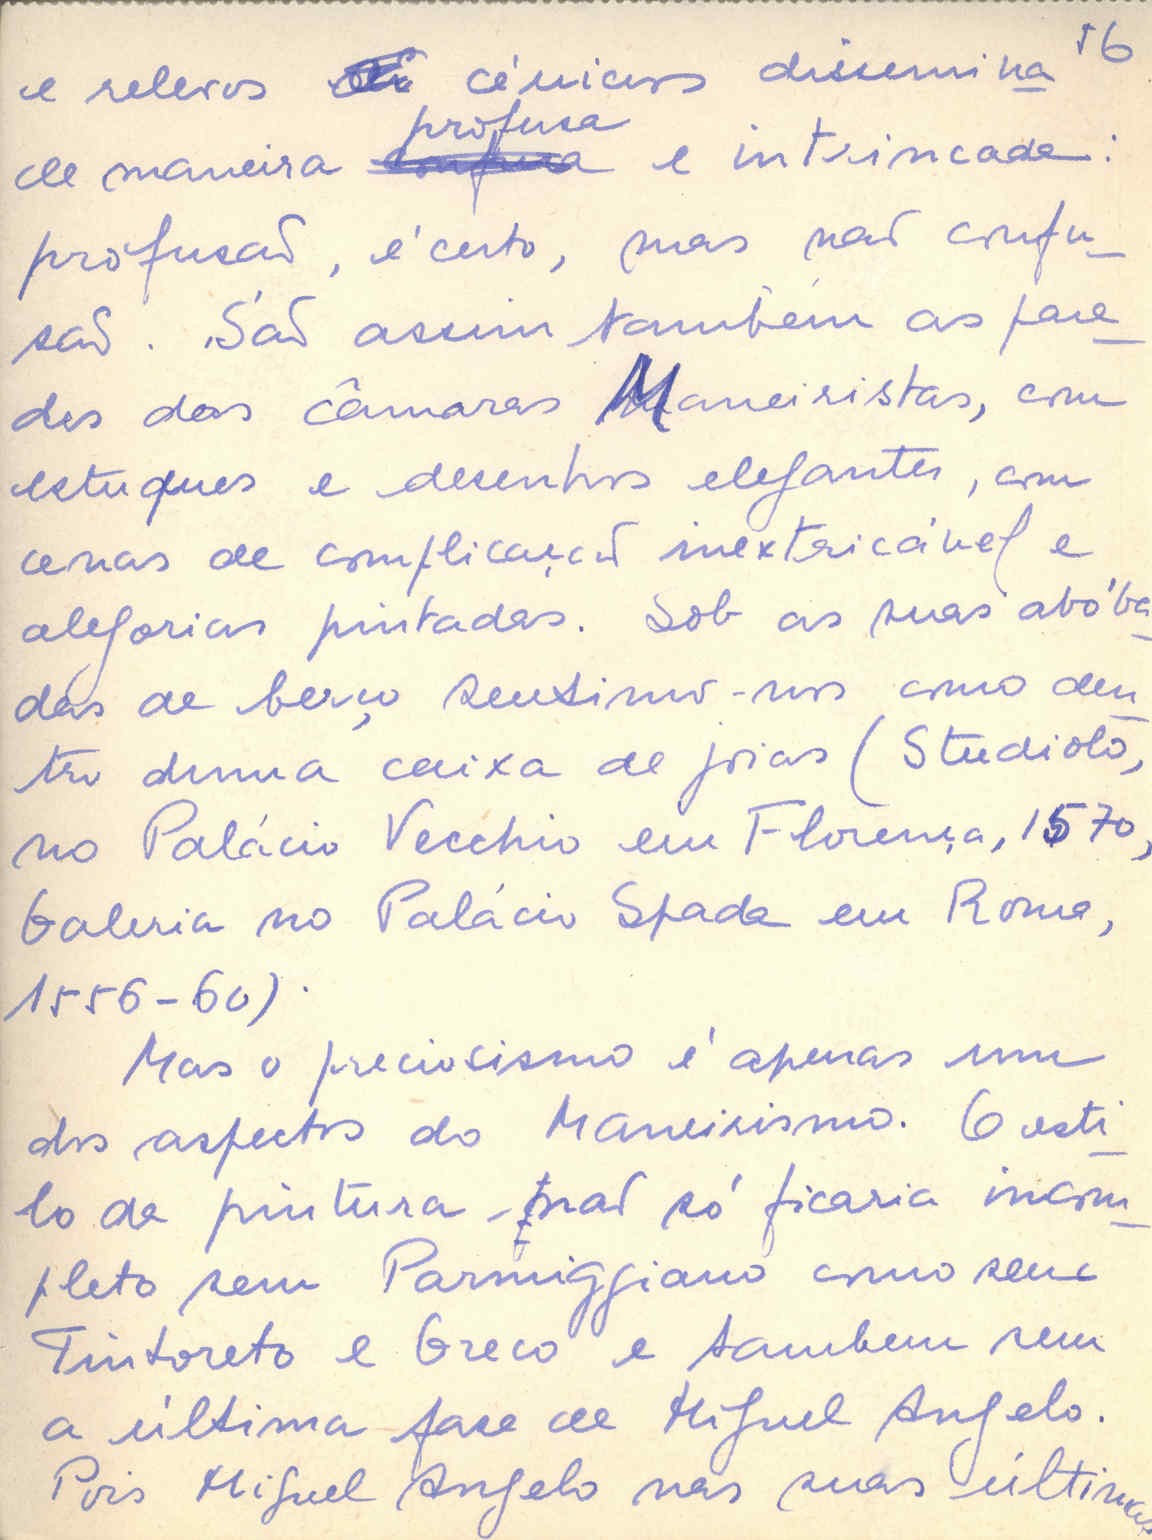 56
e relevos cénicos dissemina
profusa
de maneira confusa e intrincada:
profusaõ, é certo, mas naõ confu-
saõ. Saõ assim tambem as pare-
des das câmaras Maneiristas, com
estuques e desenhos elegantes, com
cenas de complicaçaõ inextricável e
alegorias pintadas. Sob as suas abóba-
das de berço sentimo-nos como den-
tro duma caixa de joias (Studiolo,
no Palácio Vecchio em Florença, 1570,
Galeria no Palácio Spada em Roma,
1556-60).
Mas o preciosismo é apenas um
dos aspectos do Maneirismo. O esti-
lo da pintura naõ só ficaria incom-
pleto sem Parmiggiano como sem
Tintoreto e Greco e tambem sem
a última fase de Miguel Angelo.
Pois Miguel Angelo nas suas últimas